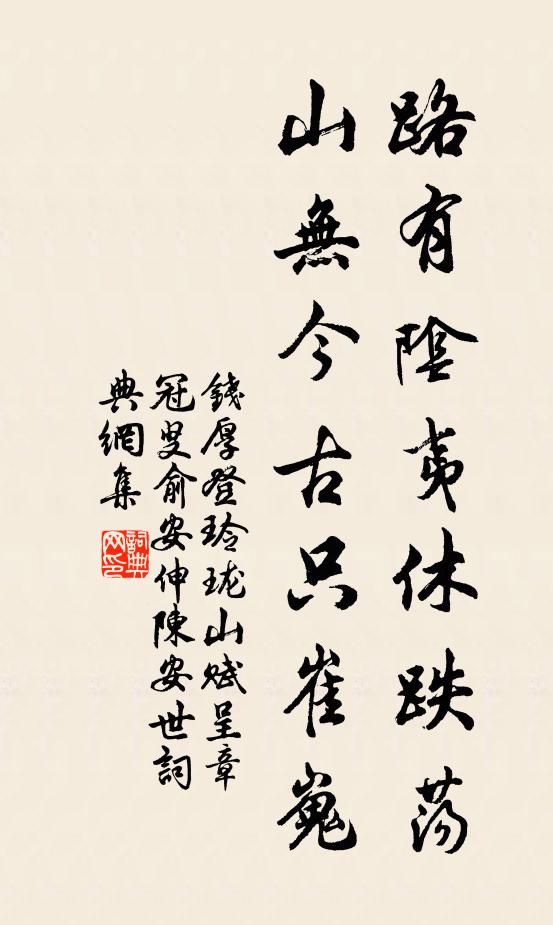 路有陰夷休跌荡
山無今古只崔嵬
錢厚登玲珑山赋呈章
冠叟俞安伸陳安世詞
典網集
詞典
网印